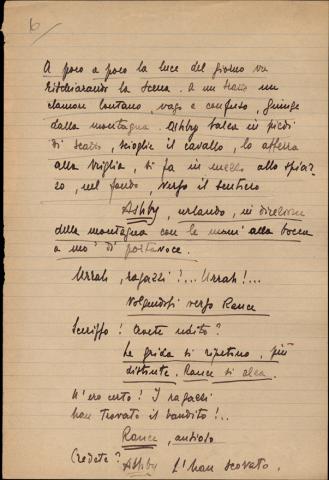 6
A poco a poco la luce del giorno va
rischiarando la scena. A un tratto un
clamore lontano, vago e confuso, giunge
dalla montagna. Ashby balza in piedi
di scatto, scioglie il cavallo, lo afferra
alla briglia, si fa in mezzo allo spiaz-
zo, nel fondo, verso il sentiero
Ashby, urlando, in direzione
della montagna con le mani alla bocca
a mo' di portavoce.
Urrah, ragazzi!... Urrah!...
Volgendosi verso Rance
Sceriffo! Avete udito?
Le grida si ripetono, più
distinte. Rance si alza.
N'ero certo! I ragazzi
han trovato il bandito!..
Rance, ansioso
Credete?
Ashby L'han scovato.